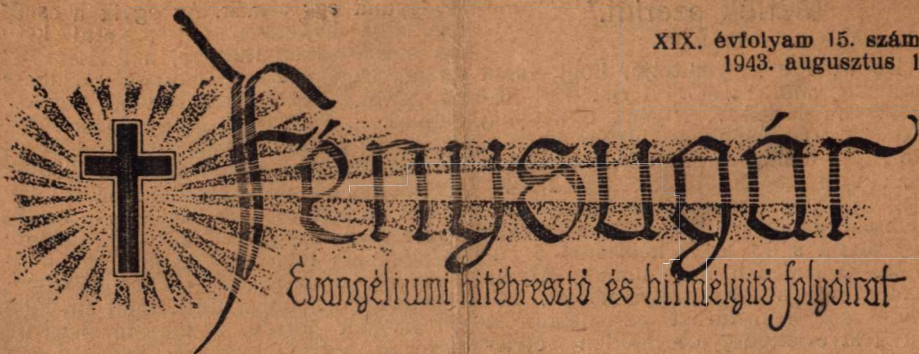 XIX. évfolyam 15. szám
1943. augusztus 1
Fénysugár
Evangéliumi hitébresztő és hitmélyitő folyóirat